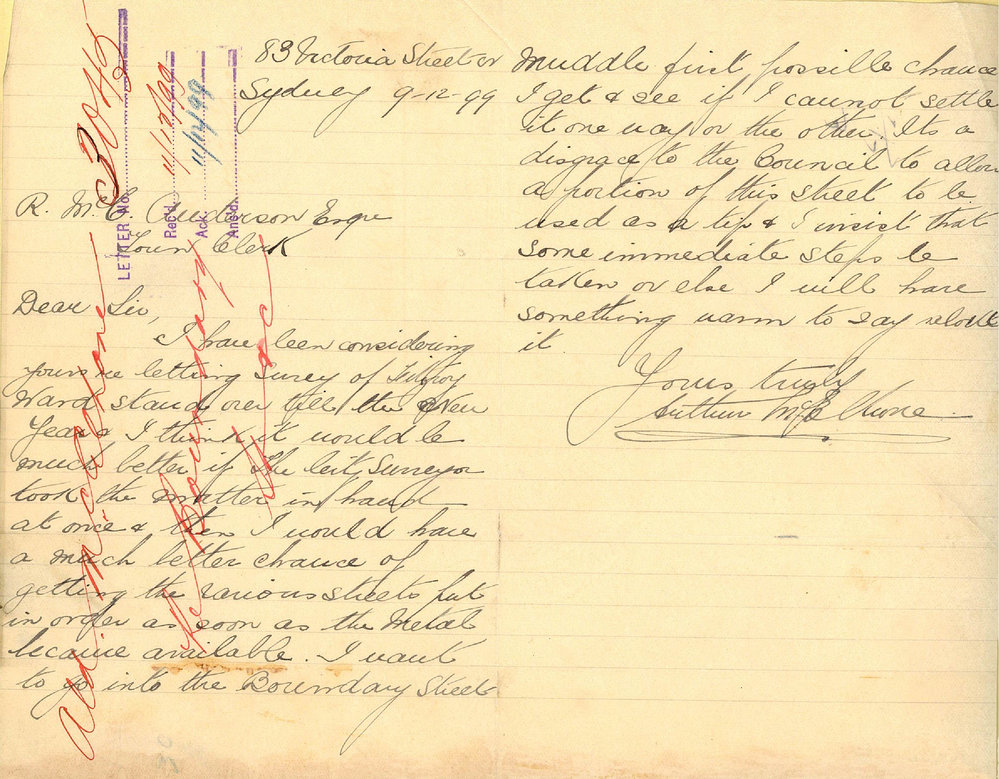 83 Victoria Street
Sydney 9-12-99
R. McC. Anderson Esqre
Town Clerk
Dear Sir,
I have been considering
yours re letting survey of Fitzroy
Ward stand over till the New
Year & I think it would be
much better if the City Surveyor
took the matter in hand
at once & then I would have
a much better chance of
getting the various streets put
in order as soon as the Metal
became available. I want
to go into the Boundary Street
muddle first possible chance
I get & see if I cannot settle
it one way or the other. Its a
disgrace to the Council to allow
a portion of this street to be
used as a tip & I insist that
some immediate steps be
taken or else I will have
something warm to say about
it
Yours truly
Arthur McElhone
LETTER No. 3042
Rec'd 11/12/99
Ack. 11/12/99
Ans'd.
Ald. McElhone
Re Boundary
St &c